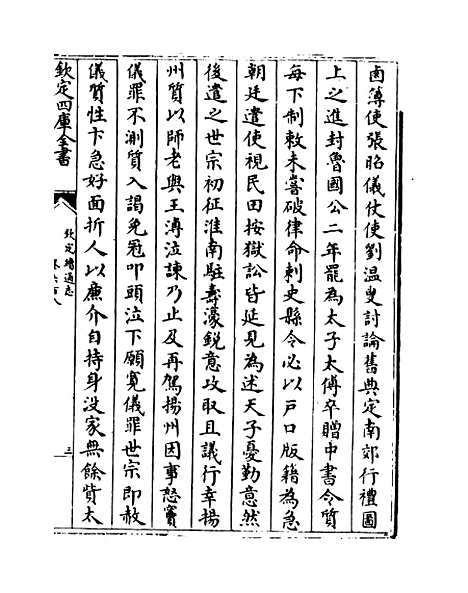 鹵簿使張昭儀仗使劉温叟討論舊典定南郊行禮圖
上之進封魯國公二年罷為太子太傅卒贈中書令質
每下制敕未嘗破律命刺史縣令必以戸口版籍為急
朝廷遣使視民田按獄訟皆延見為述天子憂勤意然
後遣之世宗初征淮南駐壽濠銳意攻取且議行幸揚
州質以師老與王溥泣諫乃止及再駕揚州因事怒竇
儀罪不測質入謁免冠叩頭泣下願寛儀罪世宗即赦
儀質性卞急好面折人以廉介自持身没家無餘貲太
欽定四庫全書
欽定續通志
三